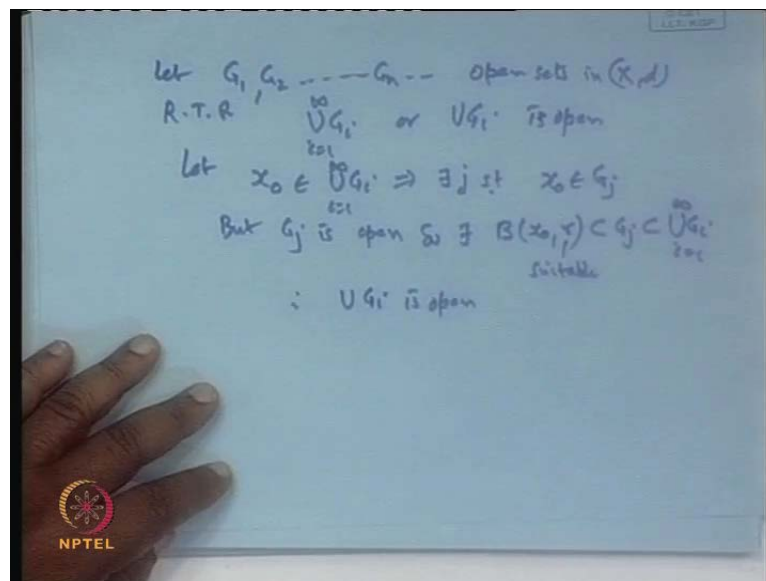 Let G₁, G₂ ----- Gₙ -- open sets in (X, d)
R.T.P ∞∪i=1 Gᵢ or ∪Gᵢ is open
Let x₀ ∈ ∞∪i=1 Gᵢ ⇒ ∃ j st x₀ ∈ Gⱼ
But Gⱼ is open So ∃ B(x₀, r) ⊂ Gⱼ ⊂ ∞∪i=1 Gᵢ
suitable
∴ ∪Gᵢ is open
NPTEL